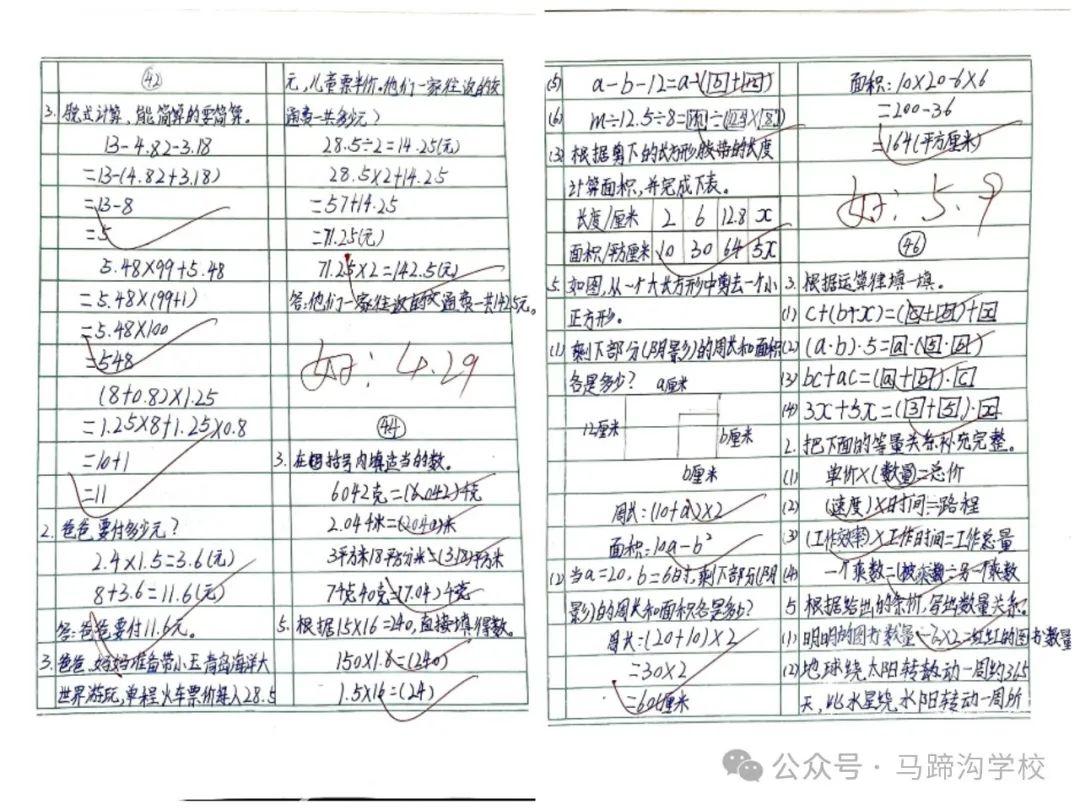 ㊷
3. 脱式计算，能简算的要简算。
13-4.82-3.18
=13-(4.82+3.18)
=13-8
=5
5.48×99+5.48
=5.48×(99+1)
=5.48×100
=548
(8+0.8)×1.25
=1.25×8+1.25×0.8
=10+1
=11
2. 爸爸要付多少元？
2.4×1.5=3.6(元)
8+3.6=11.6(元)
答:爸爸要付11.6元。
3. 爸爸、妈妈准备带小玉青岛海洋大
世界游玩,单程火车票价每人28.5
元,儿童票半价。他们一家往返的交
通费一共多少元？
28.5÷2=14.25(元)
28.5×2+14.25
=57+14.25
=71.25(元)
71.25×2=142.5(元)
答:他们一家往返的交通费一共142.5元。
好: 4.29
㊹
3. 在括号内填适当的数。
6042克=(6.042)千克
2.04千米=(2040)米
3平方米18平方分米=(3.18)平方米
7千克40克=(7.04)千克
5. 根据15×16=240,直接填得数。
150×1.6=(240)
1.5×16=(24)
(5) a-b-12=a-(b+12)
(6) m÷12.5÷8=m÷(12.5×8)
(3) 根据剪下的长方形胶带的长度
计算面积,并完成下表。
长度/厘米 2 6 12.8 x
面积/平方厘米 10 30 64 5x
5. 如图,从一个大长方形中剪去一个小
正方形。
(1) 剩下部分(阴影)的周长和面积
各是多少？
a厘米
12厘米
b厘米
b厘米
周长:(10+a)×2
面积:10a-b²
(2) 当a=20,b=6时,剩下部分(阴
影)的周长和面积各是多少?
周长:(20+10)×2
=30×2
=60厘米
面积:10×20-6×6
=200-36
=164(平方厘米)
好: 5.9
㊻
3. 根据运算律填一填。
(1) c+(b+x)=(c+b)+x
(2) (a·b)·5=a·(5·a)
(3) bc+ac=(a+b)·c
(4) 3x+5x=(3+5)·x
2. 把下面的等量关系补充完整。
(1) 单价×(数量)=总价
(2) (速度)×时间=路程
(3) (工作效率)×工作时间=工作总量
(4) 一个乘数=(被乘数÷另一个乘数
5. 根据给出的条件,写出数量关系。
(1) 明明的图书数量-6×2=红红的图书数量
(2) 地球绕太阳转动一周约365
天,比水星绕水阳转动一周所
公众号·马蹄沟学校